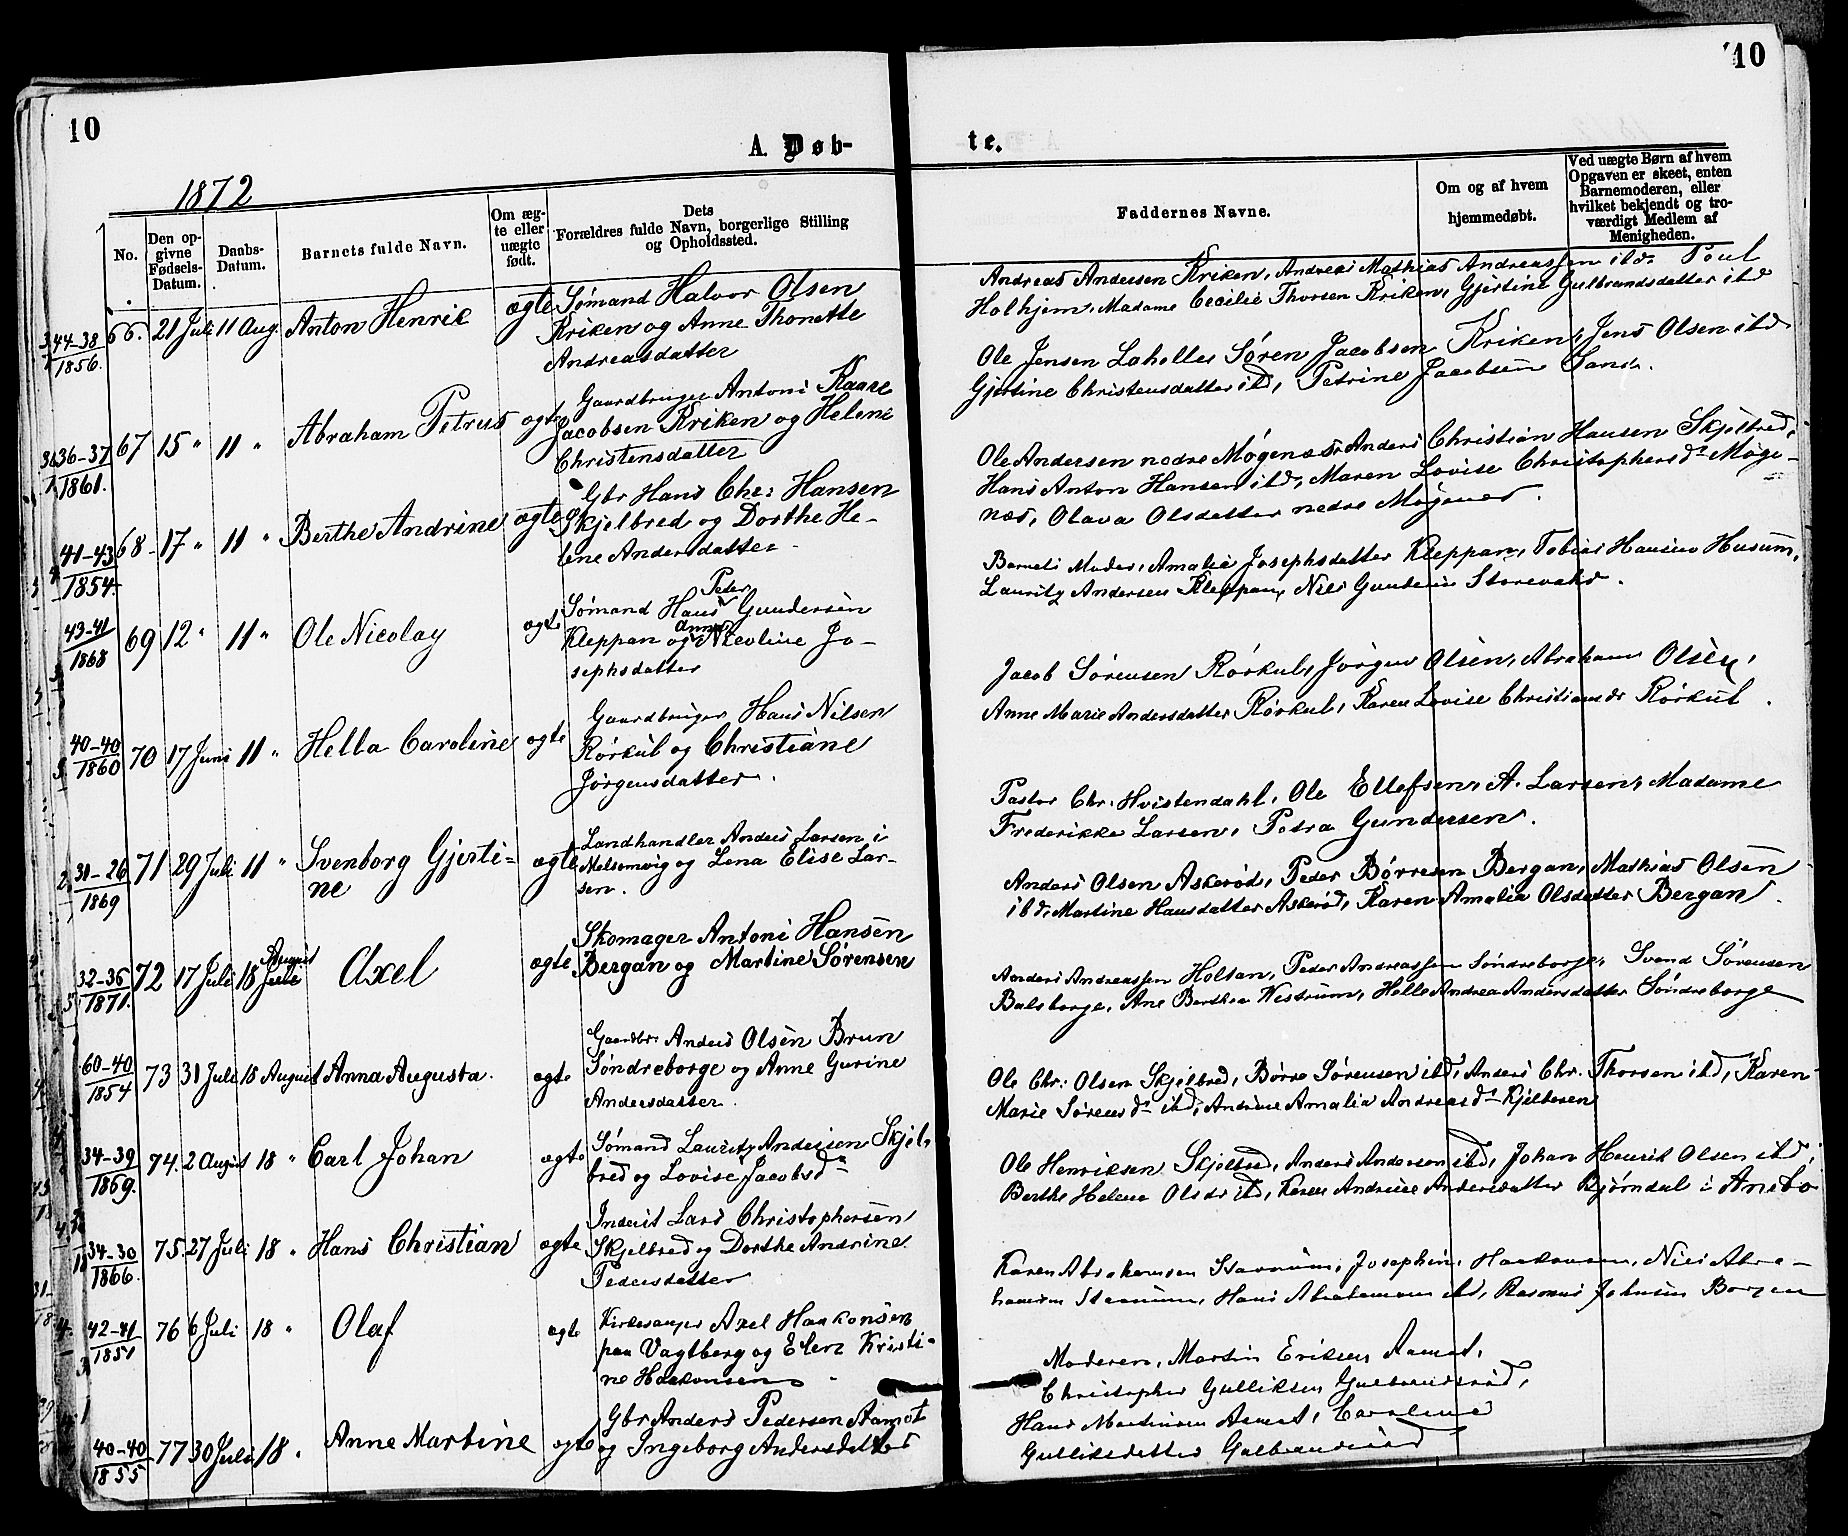 10
A. Døb-
1872
No.
Den op-
givne
Fødsels-
Datum.
Daabs-
Datum.
Barnets fulde Navn.
Om æg-
te eller
uægte
født.
Dets
Forældres fulde Navn, borgerlige Stilling
og Opholdssted.
44-38
1856.
66. 21 Juli 11 Aug. Anton Henrik ægte
Sømand Halvor Olsen
Kriken og Anne Thonette
Andreasdatter
36-37
1861.
67 15 " 11 " Abraham Petrus ægte
Gaardbruger Antoni Kaare
Jacobsen Kriken og Helene
Christensdatter
41-43
1854.
68 17 " 11 " Berthe Andrine ægte
Gbr Hans Chr: Hansen
Skjelbred og Dorthe He-
lene Andersdatter
43-41
1868
69 12 " 11 " Ole Nicolay ægte
Peder
Sømand Hans Gundersen
Anne
Kleppan og Nicoline Jo-
sephsdatter
40-40
1860
70 17 Juni 11 " Hella Caroline ægte
Gaardbruger Hans Nilsen
Rørkul og Christiane
Jørgensdatter.
31-26
1869
71 29 Juli 11 " Svenborg Gjerti-
ne
ægte
Landhandler Anders Larsen i
Melsomvig og Lena Elise Lar-
sen.
32-36
1871.
72 17 Juli 18 Juli
August
Axel
ægte
Skomager Antoni Hansen
Bergan og Martine Sørensen
60-40
1854
73 31 Juli 18 August Anna Augusta. ægte
Gaardbr: Anders Olsen Brun
Søndreborge og Anne Gurine
Andersdatter.
34-39
1869.
74. 2 August 18 " Carl Johan ægte
Sømand Lauritz Andersen Skjel-
bred og Lovise Jacobsd.
34-30
1866.
75. 27 Juli 18 " Hans Christian ægte
Inderst Lars Christophersen
Skjelbred og Dorthe Andrine
Pedersdatter
42-41
1851
76 6 Juli 18 " Olaf ægte
Kirkesanger Axel Haakonsen
paa Vagtberg og Elen Kristi-
ne Haakonsen
40-40
1855
77 30 Juli 18 " Anne Martine ægte
Gbr Anders Pedersen Aamot
og Ingeborg Andersdatter
10
te.
Faddernes Navne.
Om og af hvem
hjemmedøbt.
Ved uægte Børn af hvem
Opgaven er skeet, enten
Barnemoderen, eller
hvilket bekjendt og tro-
værdigt Medlem af
Menigheden.
Andreas Andersen Kriken, Andreas Mathias Andreassen ibd. Poul
Holhjem, Madame Cecilie Thorsen Kriken, Gjertine Gulbrandsdatter ibd
Ole Jensen Laholles Søren Jacobsen Kriken, Jens Olsen ibd
Gjertine Christensdatter ibd, Petrine Jacobsen Sand.
Ole Andersen nedre Møgenæs, Anders Christian Hansen Skjelbred,
Hans Anton Hansen ibd, Maren Lovise Christophersd. Møge-
næs, Olava Olsdatter nedre Møgenes.
Barnets Moder, Amalie Josephsdatter Kleppan, Tobias Hansen Husum,
Lauritz Andersen Kleppan, Nils Gundersen Storevahr.
Jacob Sørensen Rørkul, Jørgen Olsen, Abraham Olsen,
Anne Marie Andersdatter Rørkul, Karen Lovise Christiansdr Rørkul.
Pastor Chr. Hvistendahl, Ole Ellefsen, A. Larsen, Madame
Frederikke Larsen, Petra Gundersen.
Anders Olsen Askerød, Peder Børresen Bergan, Mathias Olsen
ibd, Martine Hansdatter Askerød, Karen Amalia Olsdatter Bergan.
Anders Andreassen Holtan, Peder Andreassen Søndreborge, Svend Sørensen
Bulsborge, Ane Berthea Westrum, Helle Andrea Andersdatter Søndreborge
Ole Chr: Olsen Skjelbred, Børre Sørensen ibd, Anders Chr. Thorsen ibd, Karen
Marie Sørensd. ibd, Andrine Amalia Andreasd. Kjilteren
Ole Henriksen Skjelbred, Anders Andersen ibd, Johan Henrik Olsen ibd,
Berthe Helene Olsdr ibd, Karen Andrine Andersdatter Bjørndal i Arebo
Karen Abrahamsen Stavnum, Josephine Haakonsen, Nils Abra-
hamsen Stavnum, Hans Abrahamsen ibd, Rasmus Johnsen Borgen
Moderen, Martin Eriksen Aamot,
Christopher Gulliksen Gulbrandsrød,
Hans Martinsen Aamot, Caroline
Gulliksdatter Gulbrandsrød